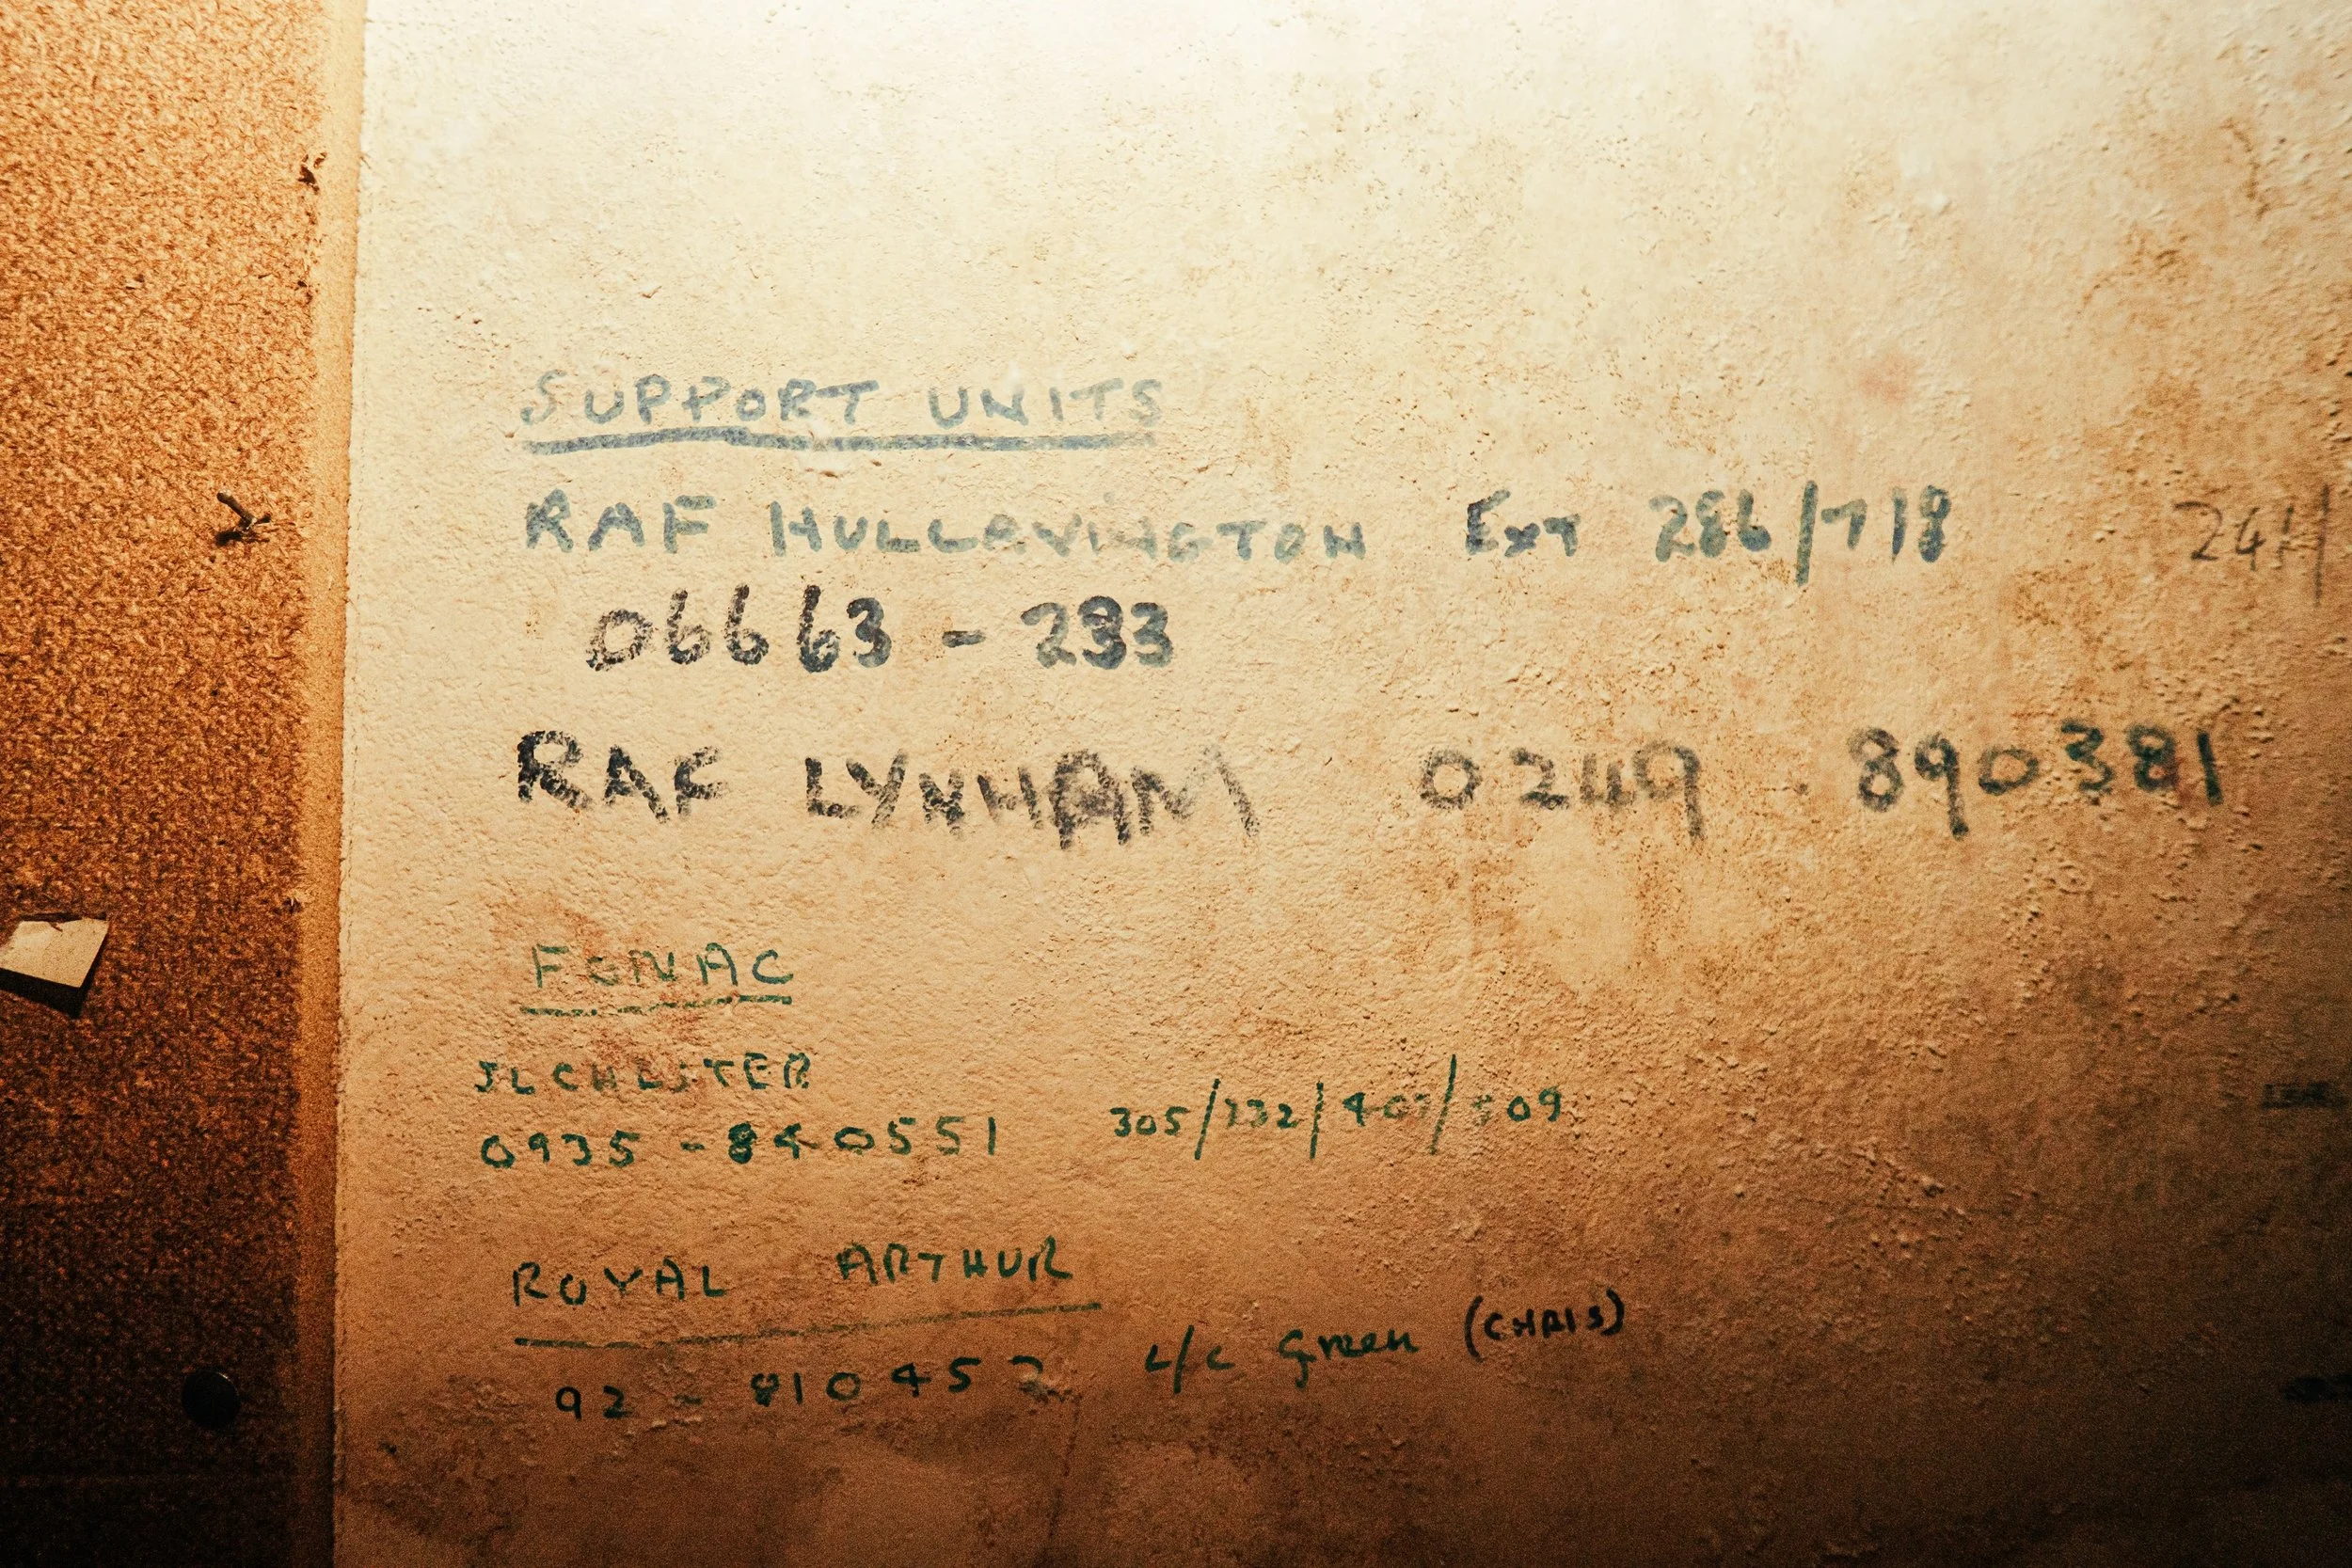 SUPPORT UNITS
RAF HULLAVINGTON Ext 286/718 24H
06663 - 283
RAF LYNHAM 0249 . 890381
FONAC
ILCHESTER
0935 - 840551 305/232/407/509
ROYAL ARTHUR
92 - 810452 L/C Green (CHRIS)